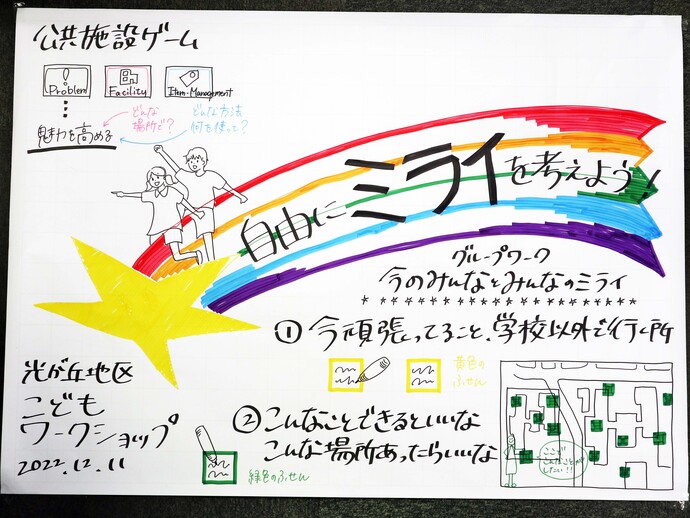 公共施設ゲーム
Problem
Facility
Item・Management
魅力を高める
どんな
場所で?
どんな方法
何を使って?
自由にミライを考えよう!
グループワーク
今のみんなとみんなのミライ
① 今頑張ってること、学校以外で行く所
黄色の
ふせん
光が丘地区
こども
ワークショップ
2022.12.11
② こんなことできるといいな
こんな場所あったらいいな
緑色のふせん
ここで
こんなことが
したい!!